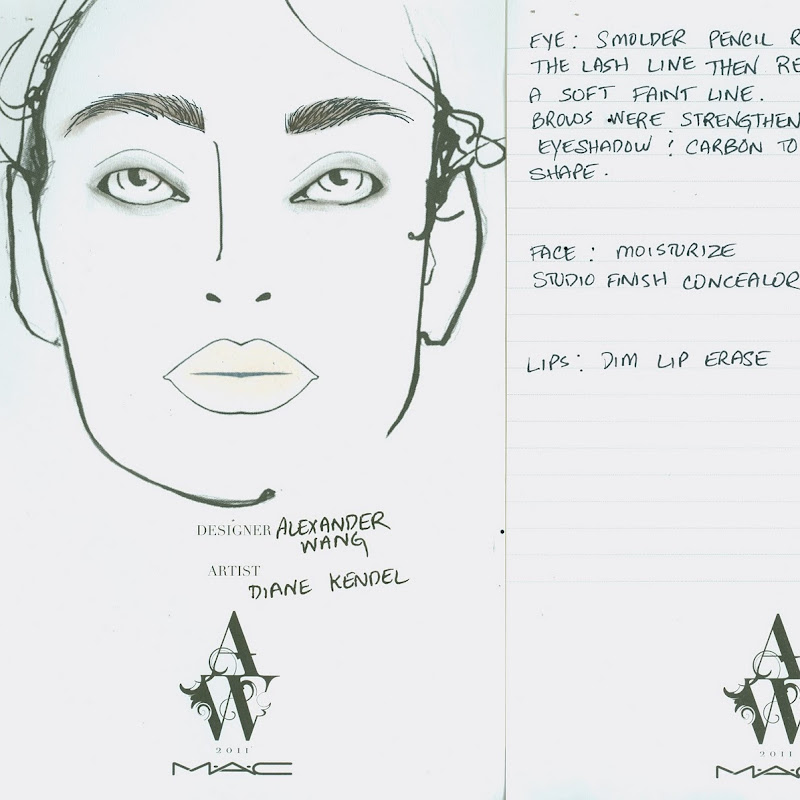 DESIGNER ALEXANDER
WANG
ARTIST
DIANE KENDEL
AW
2011
MAC
EYE: SMOLDER PENCIL R
THE LASH LINE THEN RE
A SOFT FAINT LINE.
BROWS WERE STRENGTHEN
EYESHADOW : CARBON TO
SHAPE.
FACE : MOISTURIZE
STUDIO FINISH CONCEALOR
LIPS: DIM LIP ERASE
AW
2011
MAC